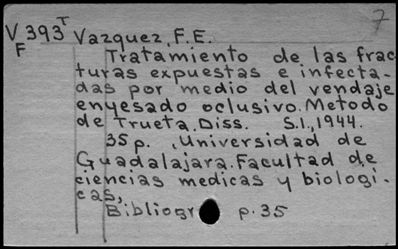 7
V 393 T Vazquez, F.E.
F Tratamiento de las frac
turas expuestas e infecta-
das por medio del vendaje
enyesado oclusivo. Metodo
de Trueta. Diss. S.l., 1944.
35 p. , Universidad de
Guadalajara. Facultad de
ciencias medicas y biologi-
cas,
Bibliogr p. 35